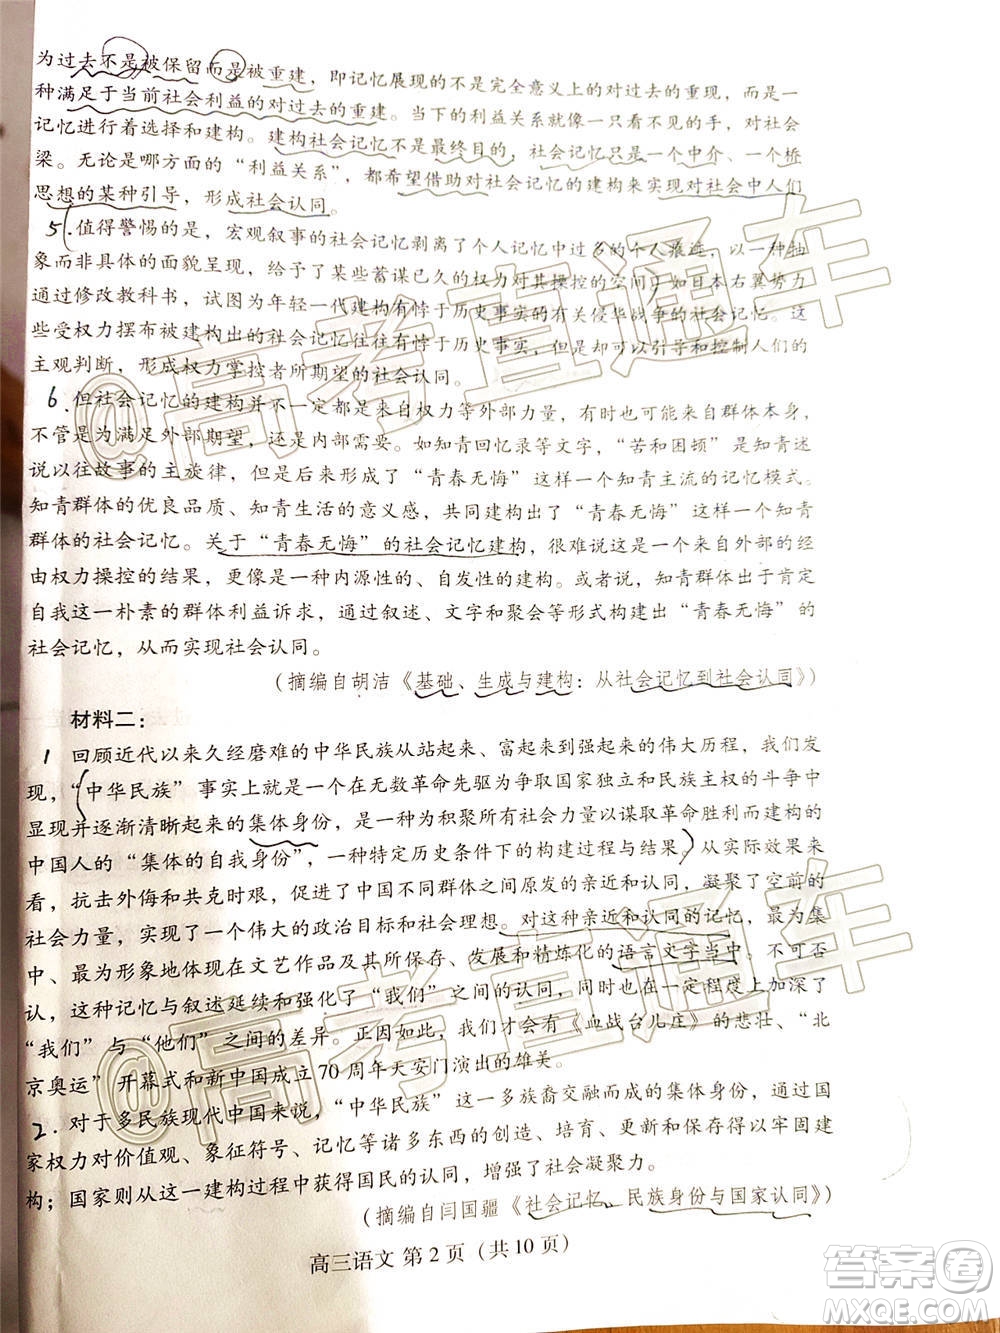 为过去不是被保留而是被重建，即记忆展现的不是完全意义上的对过去的重现，而是一
种满足于当前社会利益的对过去的重建。当下的利益关系就像一只看不见的手，对社会
记忆进行着选择和建构。建构社会记忆不是最终目的，社会记忆只是一个中介、一个桥
梁。无论是哪方面的“利益关系”，都希望借助对社会记忆的建构来实现对社会中人们
思想的某种引导，形成社会认同。
5.值得警惕的是，宏观叙事的社会记忆剥离了个人记忆中过多的个人痕迹，以一种抽
象而非具体的面貌呈现，给予了某些蓄谋已久的权力对其操控的空间，如日本右翼势力
通过修改教科书，试图为年轻一代建构有悖于历史事实的有关侵华战争的社会记忆。这
些受权力摆布被建构出的社会记忆往往有悖于历史事实，但是却可以引导和控制人们的
主观判断，形成权力掌控者所期望的社会认同。
6.但社会记忆的建构并不一定都是来自权力等外部力量，有时也可能来自群体本身，
不管是为满足外部期望，还是内部需要。如知青回忆录等文字，“苦和困顿”是知青迷
说以往故事的主旋律，但是最后却形成了“青春无悔”这样一个知青主流的记忆模式。
知青群体的优良品质、知青生活的意义感，共同建构出了“青春无悔”这样一个知青
群体的社会记忆。关于“青春无悔”的社会记忆建构，很难说是一个来自外部的经
由权力操控的结果，更像是一种内源性的、自发性的建构。或者说，知青群体出于肯定
自我这一朴素的群体利益诉求，通过叙述、文字和聚会等形式构建出“青春无悔”的
社会记忆，从而实现社会认同。
（摘编自胡洁《基础、生成与建构：从社会记忆到社会认同》）
材料二：
1 回顾近代以来久经磨难的中华民族从站起来、富起来到强起来的伟大历程，我们发
现，“中华民族”事实上就是一个在无数革命先驱为争取国家独立和民族主权的斗争中
显现并逐渐清晰起来的集体身份，是一种为积聚所有社会力量以谋取革命胜利而建构的
中国人的“集体的自我身份”，一种特定历史条件下的构建过程与结果。从实际效果来
看，抗击外侮和共克时艰，促进了中国不同群体之间的亲近和认同，凝聚了空前的
社会力量，实现了一个伟大的政治目标和社会理想。对这种亲近和认同的记忆，最为集
中、最为形象地体现在文艺作品及其所保存、发展和精炼化的语言文字当中。不可否
认，这种记忆与叙述延续和强化了“我们”之间的认同，同时也在一定程度上强化了
“我们”与“他们”之间的差异。正因如此，我们才会有《血战台儿庄》的悲壮、“北
京奥运”开幕式和新中国成立70周年天安门演出的雄美。
2.对于多民族现代中国来说，“中华民族”这一多族裔交融而成的集体身份，通过国
家权力对价值观、象征符号、记忆等诸多东西的创造、培育、更新和保存得以牢固建
构；国家则从这一建构过程中获得国民的认同，增强了社会凝聚力。
（摘编自闫国疆《社会记忆、民族身份与国家认同》）
高三语文 第2页（共10页）
@高考直通车
@高考直通车
答案卷
MXQE.COM